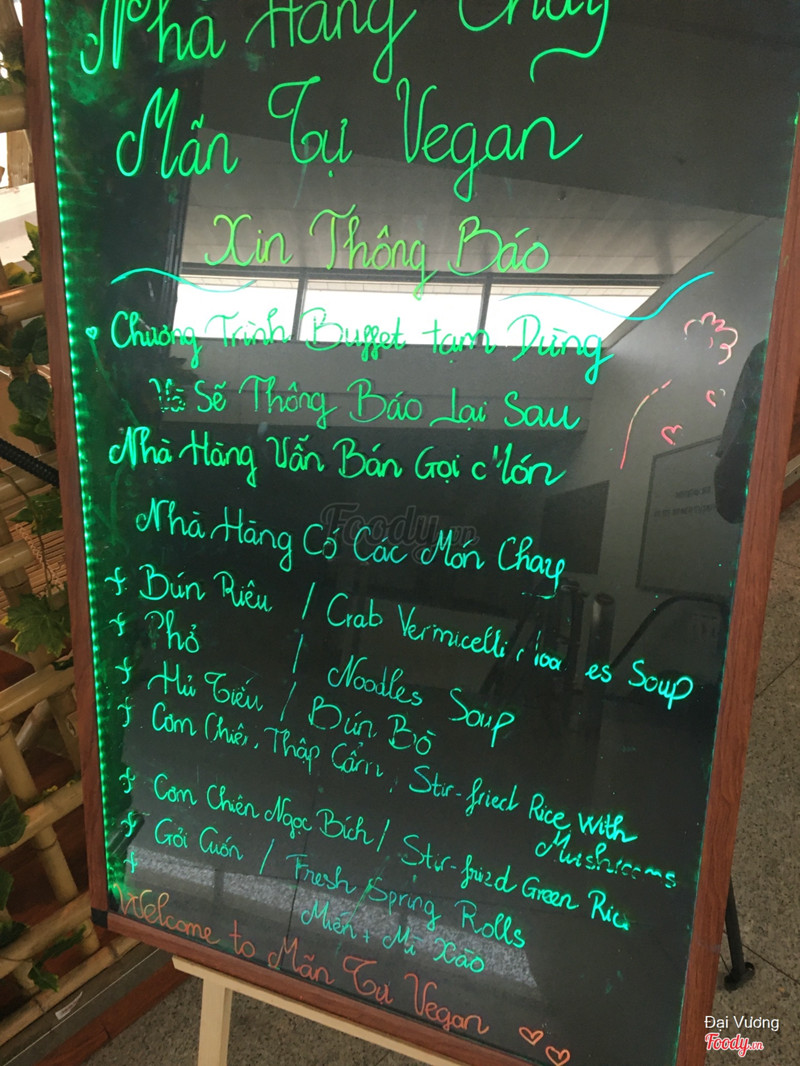 Nhà Hàng Chay
Mãn Tự Vegan
Xin Thông Báo
Chương Trình Buffet tạm Dừng
Và Sẽ Thông Báo Lại Sau
Nhà Hàng Vẫn Bán Gọi Món
Nhà Hàng Có Các Món Chay
Bún Riêu / Crab Vermicelli Noo es Soup
Phỏ / Noodles Soup
Hủ Tiếu / Bún Bò
Cơm Chiên, Thập Cẩm, Stir-fried Rice With Mushrooms
Cơm Chiên Ngọc Bích / Stir-fried Green Rice
Gỏi Cuốn / Fresh Spring Rolls
Miến + Mì Xào
Welcome to Mãn Tự Vegan
Foody.vn
Đại Vương
Foody.vn